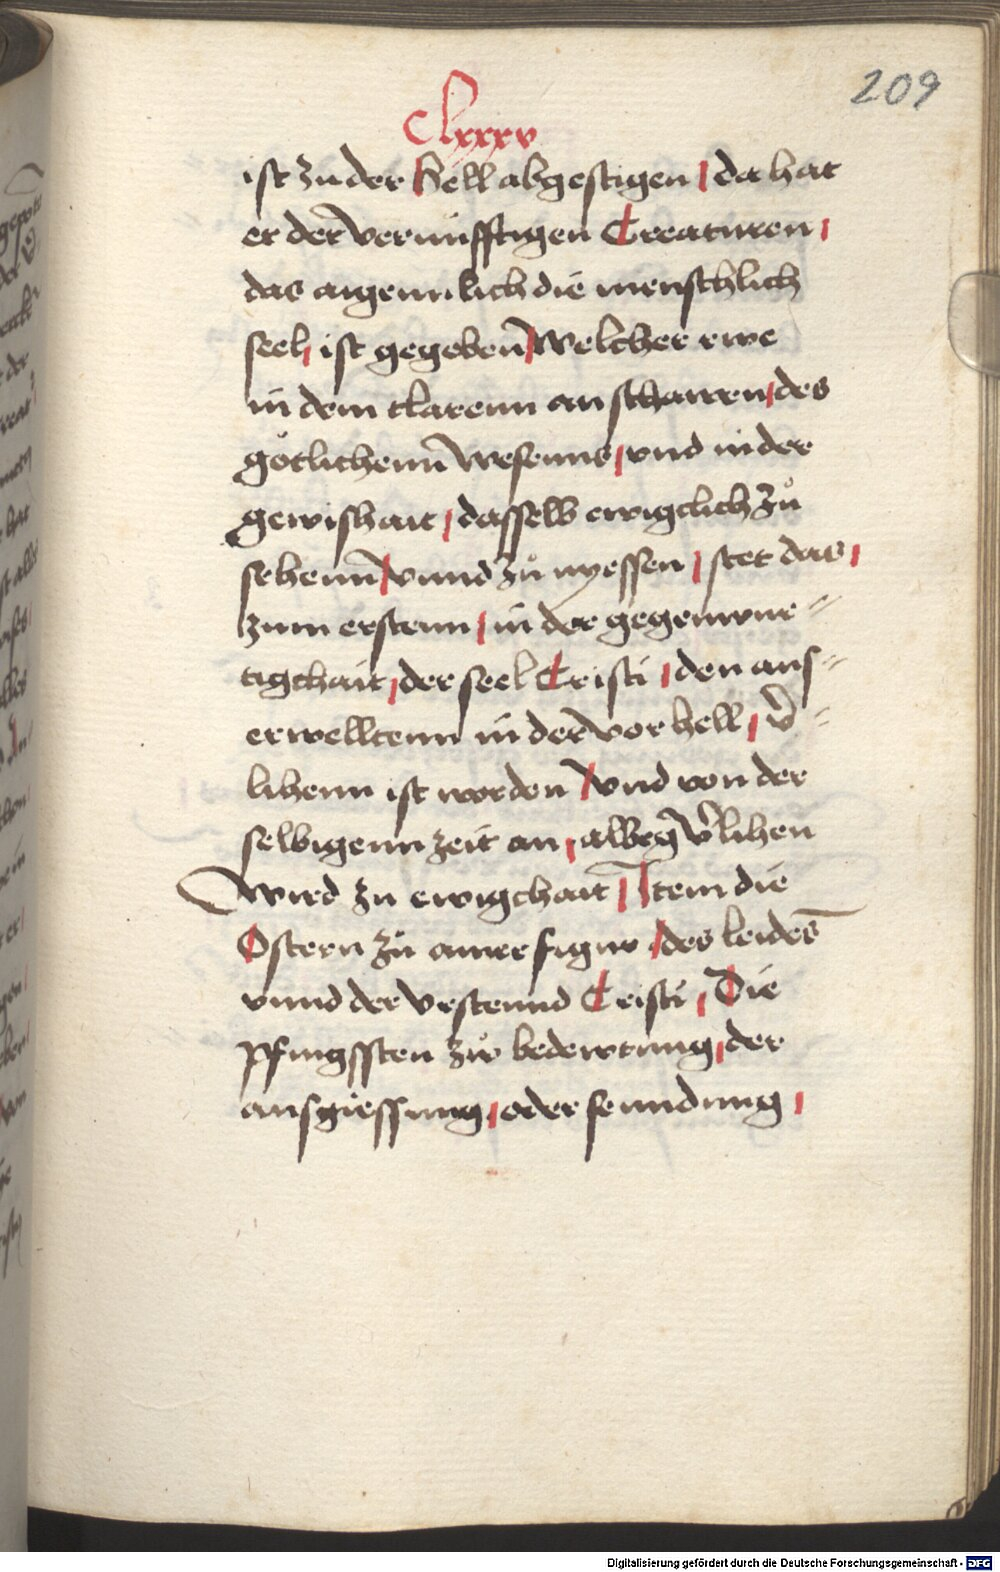 209
Clxxxv
ist zu der Hell abgestigen / da hat
er der vernünfftigen Creaturen /
das aigenntlich die menschlich
seel / ist gegeben / welcher rwe
in dem clarenn anschawen / des
götlichenn wesenns / vnd in der
gewishait / dasselb ewigclich zů
sehenn / vnnd zů nyessen / stet das /
zum erstenn / in der gegenwur=
tigchait / der seel Cristi / den aus=
erwelltenn in der vor hell / v̄=
lihenn ist worden / vnd von der
selbigenn zeit an / albeg v̄lihen
wird zu ewigchait / Item die
Ostern zů ainer figur / des leides
vnnd der vrstennd Cristi / Die
pfingssten zůr bedewtung / der
ausgiessung / oder senndung /
Digitalisierung gefördert durch die Deutsche Forschungsgemeinschaft - DFG